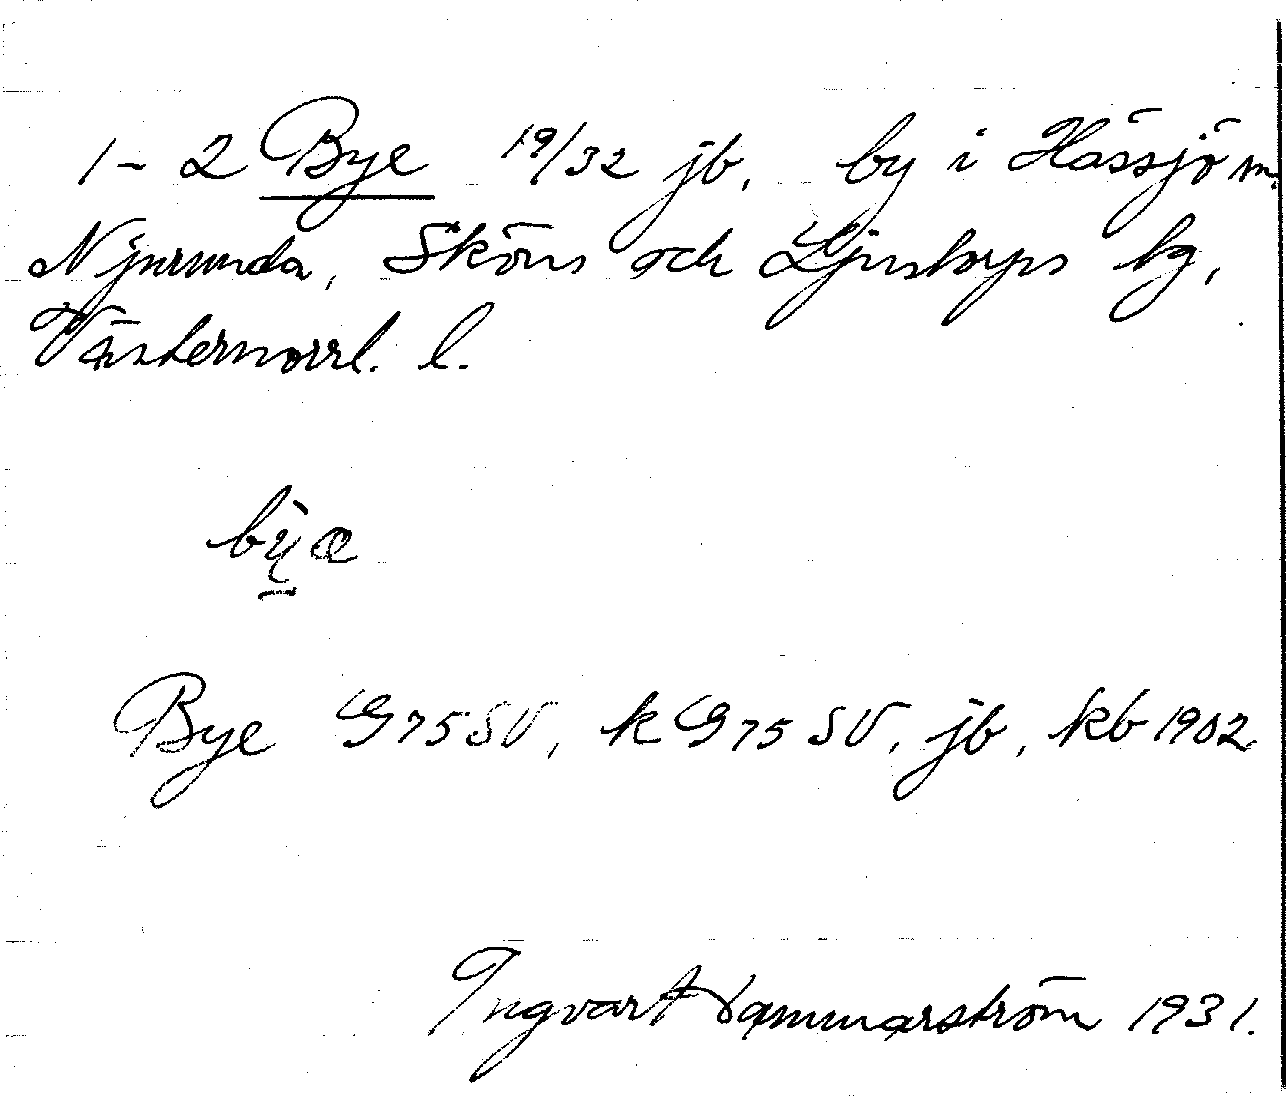 1-2 Bye 19/32 jb, by i Hässjö sn.
Njurunda, Sköns och Ljustorps tg,
Västernorrl. l.
Bye G75SV, k G75SV, jb, kb 1902.
Ingvart 1931.